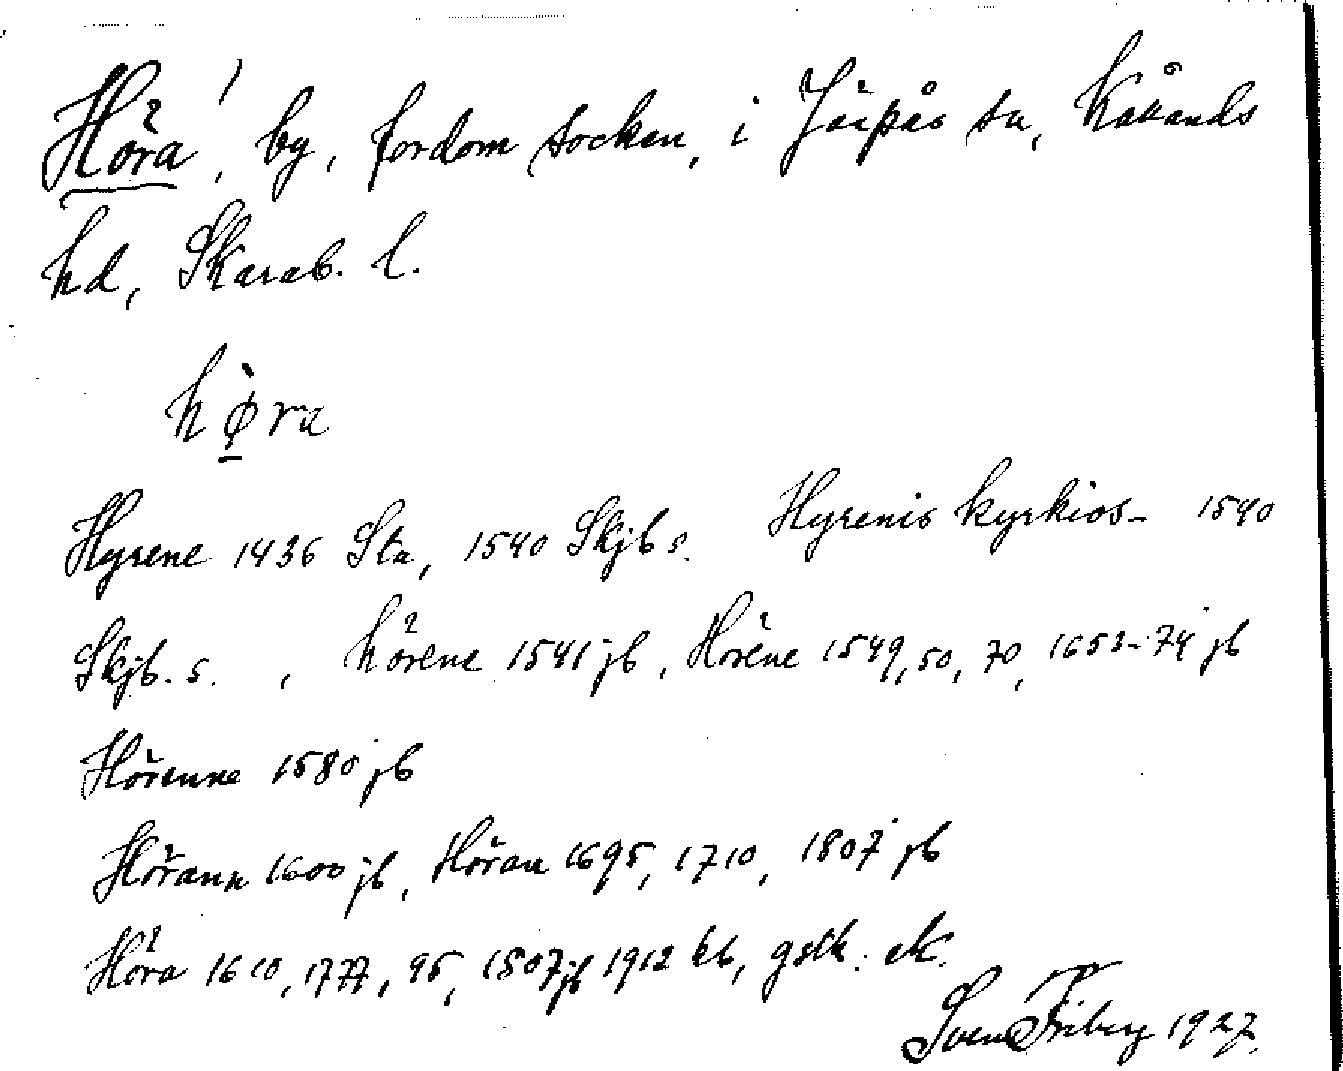 Höra, by, fordom socken, i Järpås sn, Kållands
hd, Skarab. l.
hø̀ra
Hyrene 1436 Sta, 1540 Skjb s. Hyrenis kyrkios- 1540
Skjb. s. , hörene 1541 jb, Hörene 1549, 50, 70, 1653-74 jb
Hörenne 1580 jb
Hörann 1600 jb, Höran 1695, 1710, 1807 jb
Höra 1610, 1777, 95, 1807 jb 1912 kb, gstk. ek.
Sven Friberg 1927.